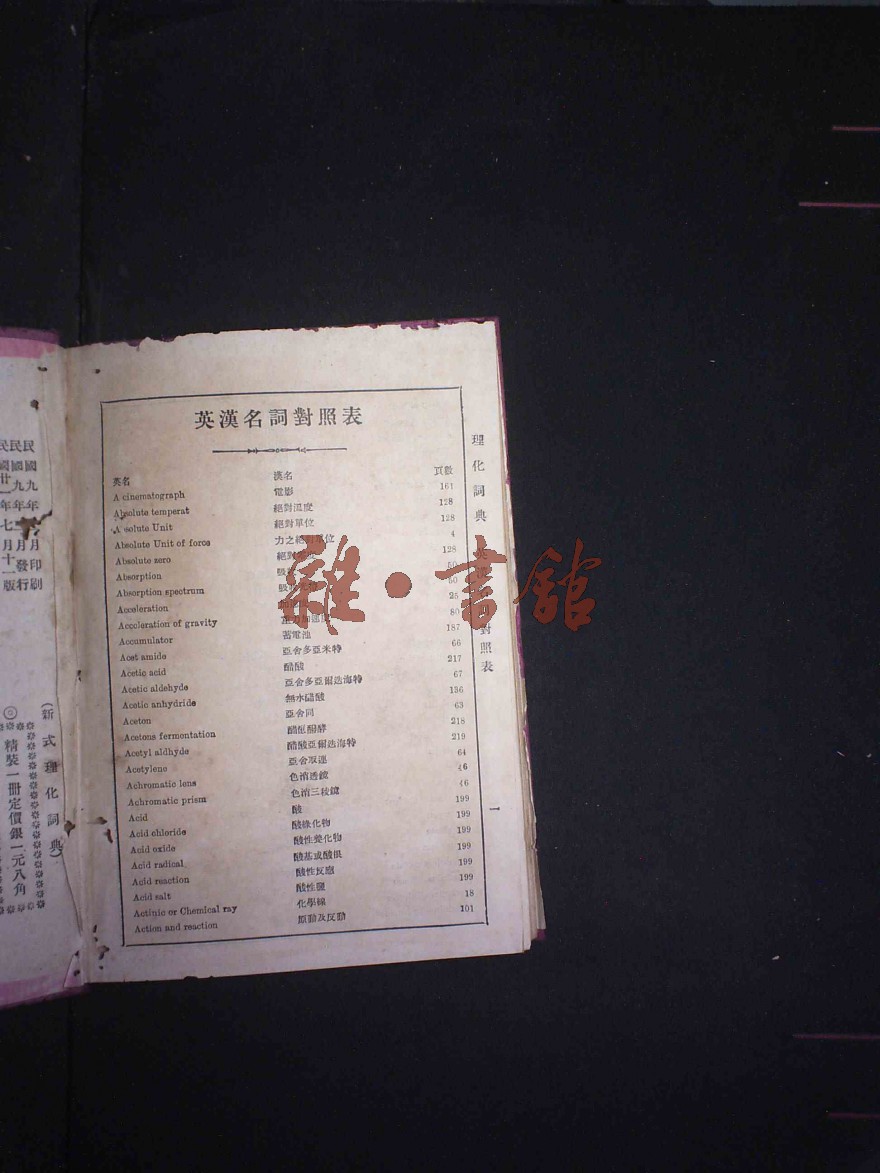 英漢名詞對照表
英名 漢名 頁數
A cinematograph 電影 161
Absolute temperat 絕對溫度 128
A solute Unit 絕對單位 128
Absolute Unit of force 力之絕對單位 4
Absolute zero 絕對 128
Absorption 吸 50
Absorption spectrum 吸 50
Acceleration 加速度 25
Acceleration of gravity 重力加速度 80
Accumulator 蓄電池 187
Acet amide 亞舍多亞米特 66
Acetic acid 醋酸 217
Acetic aldehyde 亞舍多亞爾迭海特 67
Acetic anhydride 無水醋酸 136
Aceton 亞舍同 63
Acetons fermentation 醋酸醱酵 218
Acetyl aldhyde 醋酸亞爾迭海特 219
Acetylene 亞舍双連 64
Achromatic lens 色消透鏡 46
Achromatic prism 色消三稜鏡 46
Acid 酸 199
Acid chloride 酸綠化物 199
Acid oxide 酸性養化物 199
Acid radical 酸基或酸根 199
Acid reaction 酸性反應 199
Acid salt 酸性鹽 199
Actinic or Chemical ray 化學線 18
Action and reaction 原動及反動 101
理化詞典 英漢 對照表
一
國九年 月印刷
國九年 月發行
(新式理化詞典)
◎精裝一冊定價銀一元八角
雜·書館